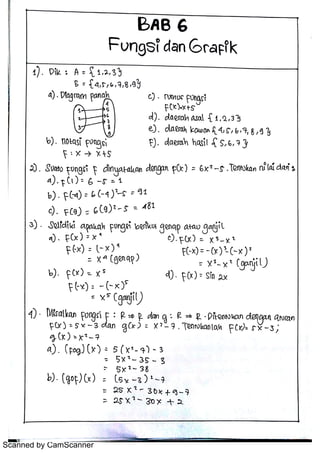 BAB 6
Fungsi dan Grafik
1). Dik : A = { 1,2,3 }
B = { 4,5,6,7,8,9 }
a). Diagram panah
c). rumus fungsi
F(x)=x+5
d). daerah asal { 1,2,3 }
e). daerah kawan { 4,5,6,7,8,9 }
b). notasi fungsi
F). daerah hasil { 5,6,7 }
F : x → x+5
2). Suatu fungsi F dinyatakan dengan F(x) = 6x² - 5. Tentukan nilai dari :
a). F(1) = 6 - 5 = 1
b). F(-4) = 6(-4)² - 5 = 91
c). F(9) = 6(9)² - 5 = 481
3). Selidiki apakah fungsi berikut genap atau ganjil
a). F(x) = x⁴
c). F(x) = x³ - x²
F(-x) = (-x)⁴
F(-x) = -(x)³ - (-x)²
= x⁴ (genap)
= x³ - x² (ganjil)
b). F(x) = x⁵
d). F(x) = sin 2x
F(-x) = -(-x)⁵
= x⁵ (ganjil)
4). Misalkan fungsi F : R → R dan g : R → R. Ditentukan dengan aturan
F(x) = 5x - 3 dan g(x) = x² - 7. Tentukanlah F(x) = 5x - 3;
g(x) = x² - 7
a). (fog)(x) = 5(x² - 7) - 3
= 5x² - 35 - 3
= 5x² - 38
b). (gof)(x) = (5x - 3)² - 7
= 25x² - 30x + 9 - 7
= 25x² - 30x + 2
Scanned by CamScanner